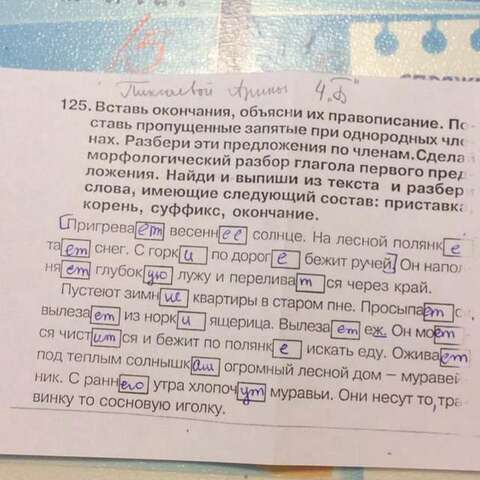 Пикалевой Арины 4.Б
125. Вставь окончания, объясни их правописание. По-
ставь пропущенные запятые при однородных чле-
нах. Разбери эти предложения по членам.Сделай
морфологический разбор глагола первого пред-
ложения. Найди и выпиши из текста и разбери
слова, имеющие следующий состав: приставка,
корень, суффикс, окончание.
[Пригревает весеннее солнце. На лесной полянке
тает снег. С горки по дороге бежит ручей] Он напол-
няет глубокую лужу и переливатся через край.
Пустеют зимние квартиры в старом пне. Просыпаетс
вылезает из норки ящерица. Вылезает еж. Он моет
ся чистится и бежит по полянке искать еду. Оживает
под теплым солнышкаш огромный лесной дом – муравей
ник. С раннего утра хлопочут муравьи. Они несут то, тра
винку то сосновую иголку.